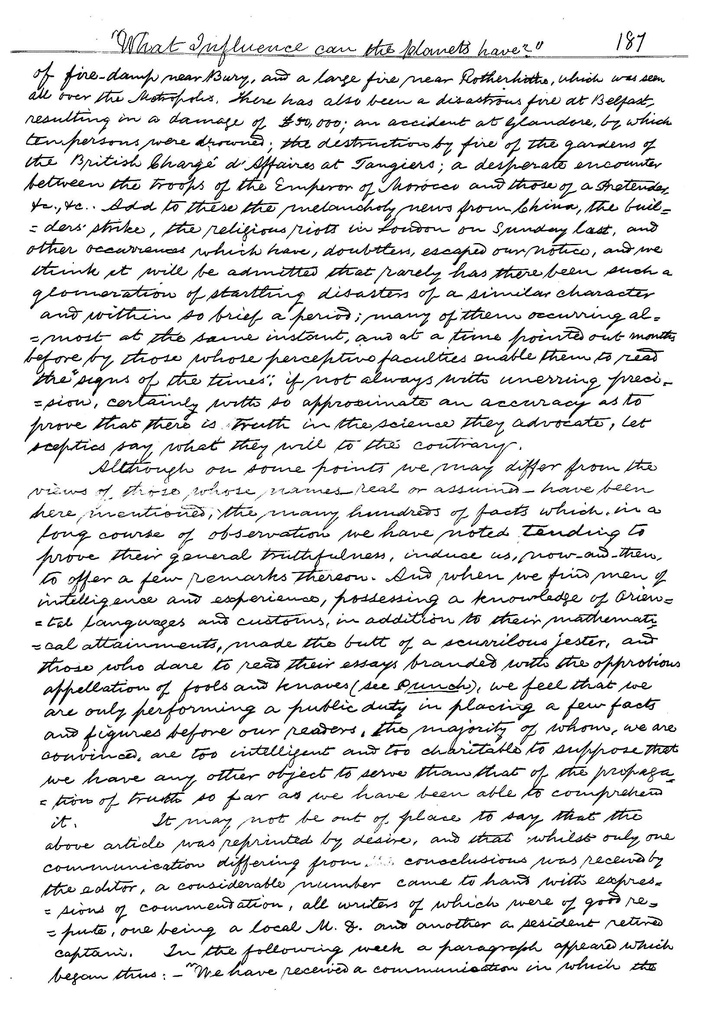 "What Influence can the planets have?" 187
of fire-damp near Bury, and a large fire near Rotherhithe, which was seen
all over the Metropolis. There has also been a disastrous fire at Belfast,
resulting in a damage of £50,000; an accident at Glandore, by which
ten persons were drowned; the destruction by fire of the gardens of
the British Chargé d'Affaires at Tangiers; a desperate encounter
between the troops of the Emperor of Morocco and those of a Pretender,
&c., &c.. Add to these the melancholy news from China, the buil-
=ders' strike, the religious riots in London on Sunday last, and
other occurrences which have, doubtless, escaped our notice, and we
think it will be admitted that rarely has there been such a
glomeration of startling disasters of a similar character
and within so brief a period; many of them occurring al=
=most at the same instant, and at a time pointed out months
before by those whose perceptive faculties enable them to read
the "signs of the times"; if not always with unerring preci-
=sion, certainly with so approximate an accuracy as to
prove that there is truth in the science they advocate, let
sceptics say what they will to the contrary.
Although on some points we may differ from the
views of those whose names—real or assumed—have been
here mentioned, the many hundreds of facts which, in a
long course of observation we have noted tending to
prove their general truthfulness, induce us, now-and-then,
to offer a few remarks thereon. And when we find men of
intelligence and experience, possessing a knowledge of Orien-
=tal languages and customs, in addition to their mathemati-
=cal attainments, made the butt of a scurrilous jester, and
those who dare to read their essays branded with the opprobious
appellation of fools and knaves (see Punch), we feel that we
are only performing a public duty in placing a few facts
and figures before our readers, the majority of whom, we are
convinced, are too intelligent and too charitable to suppose that
we have any other object to serve than that of the propaga-
=tion of truth so far as we have been able to comprehend
it. It may not be out of place to say that the
above article was reprinted by desire, and that whilst only one
communication differing from conclusions was received by
the editor, a considerable number came to hand with expres=
=sions of commendation, all writers of which were of good re=
=pute, one being a local M. D. and another a resident retired
captain. In the following week a paragraph appeared which
began thus:—"We have received a communication in which the